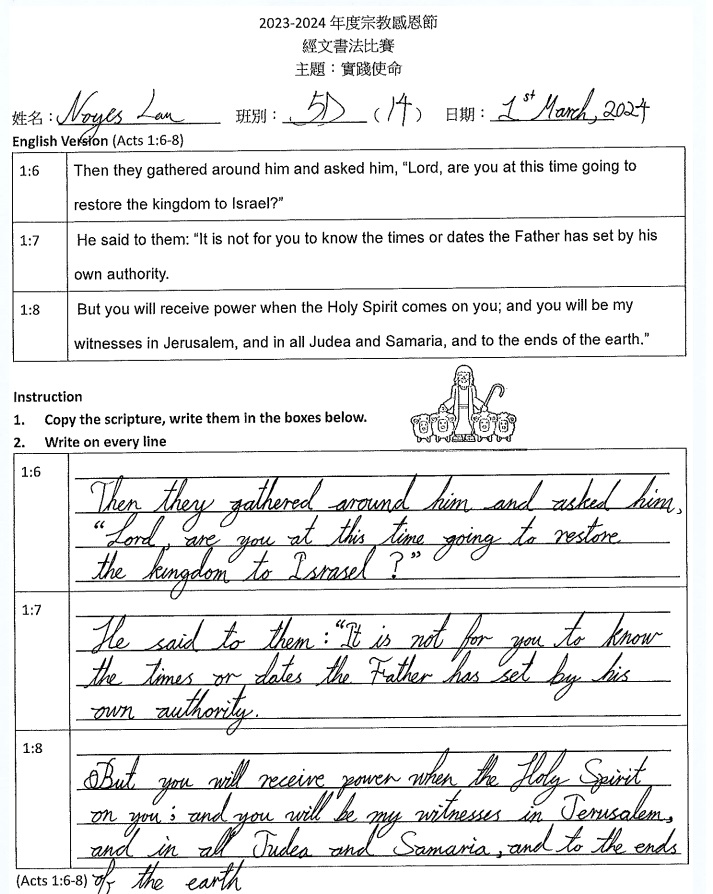 2023-2024 年度宗教感恩節
經文書法比賽
主題：實踐使命
姓名：Noyes Lau 班別：5D (14) 日期：1st March, 2024
English Version (Acts 1:6-8)
1:6 Then they gathered around him and asked him, “Lord, are you at this time going to
restore the kingdom to Israel?”
1:7 He said to them: “It is not for you to know the times or dates the Father has set by his
own authority.
1:8 But you will receive power when the Holy Spirit comes on you; and you will be my
witnesses in Jerusalem, and in all Judea and Samaria, and to the ends of the earth.”
Instruction
1. Copy the scripture, write them in the boxes below.
2. Write on every line
1:6
Then they gathered around him and asked him,
“Lord, are you at this time going to restore
the kingdom to Israsel ?”
1:7
He said to them : “It is not for you to know
the times or dates the Father has set by his
own authority.
1:8
But you will receive power when the Holy Spirit
on you ; and you will be my witnesses in Jerusalem,
and in all Judea and Samaria, and to the ends
(Acts 1:6-8) of the earth